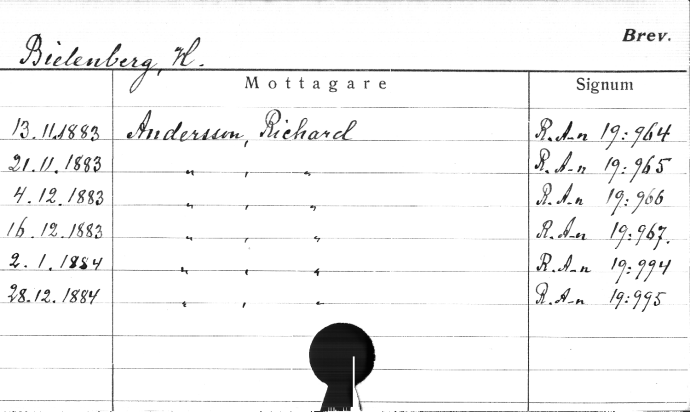 Brev.
Bielenberg, H.
Mottagare Signum
13.11.1883 Andersson, Richard R. A-n 19:964
21.11.1883 " , " R. A-n 19:965
4.12.1883 " , " R. A-n 19:966
16.12.1883 " , " R. A-n 19:967.
2.1.1884 " , " R. A-n 19:994
28.12.1884 " , " R. A-n 19:995